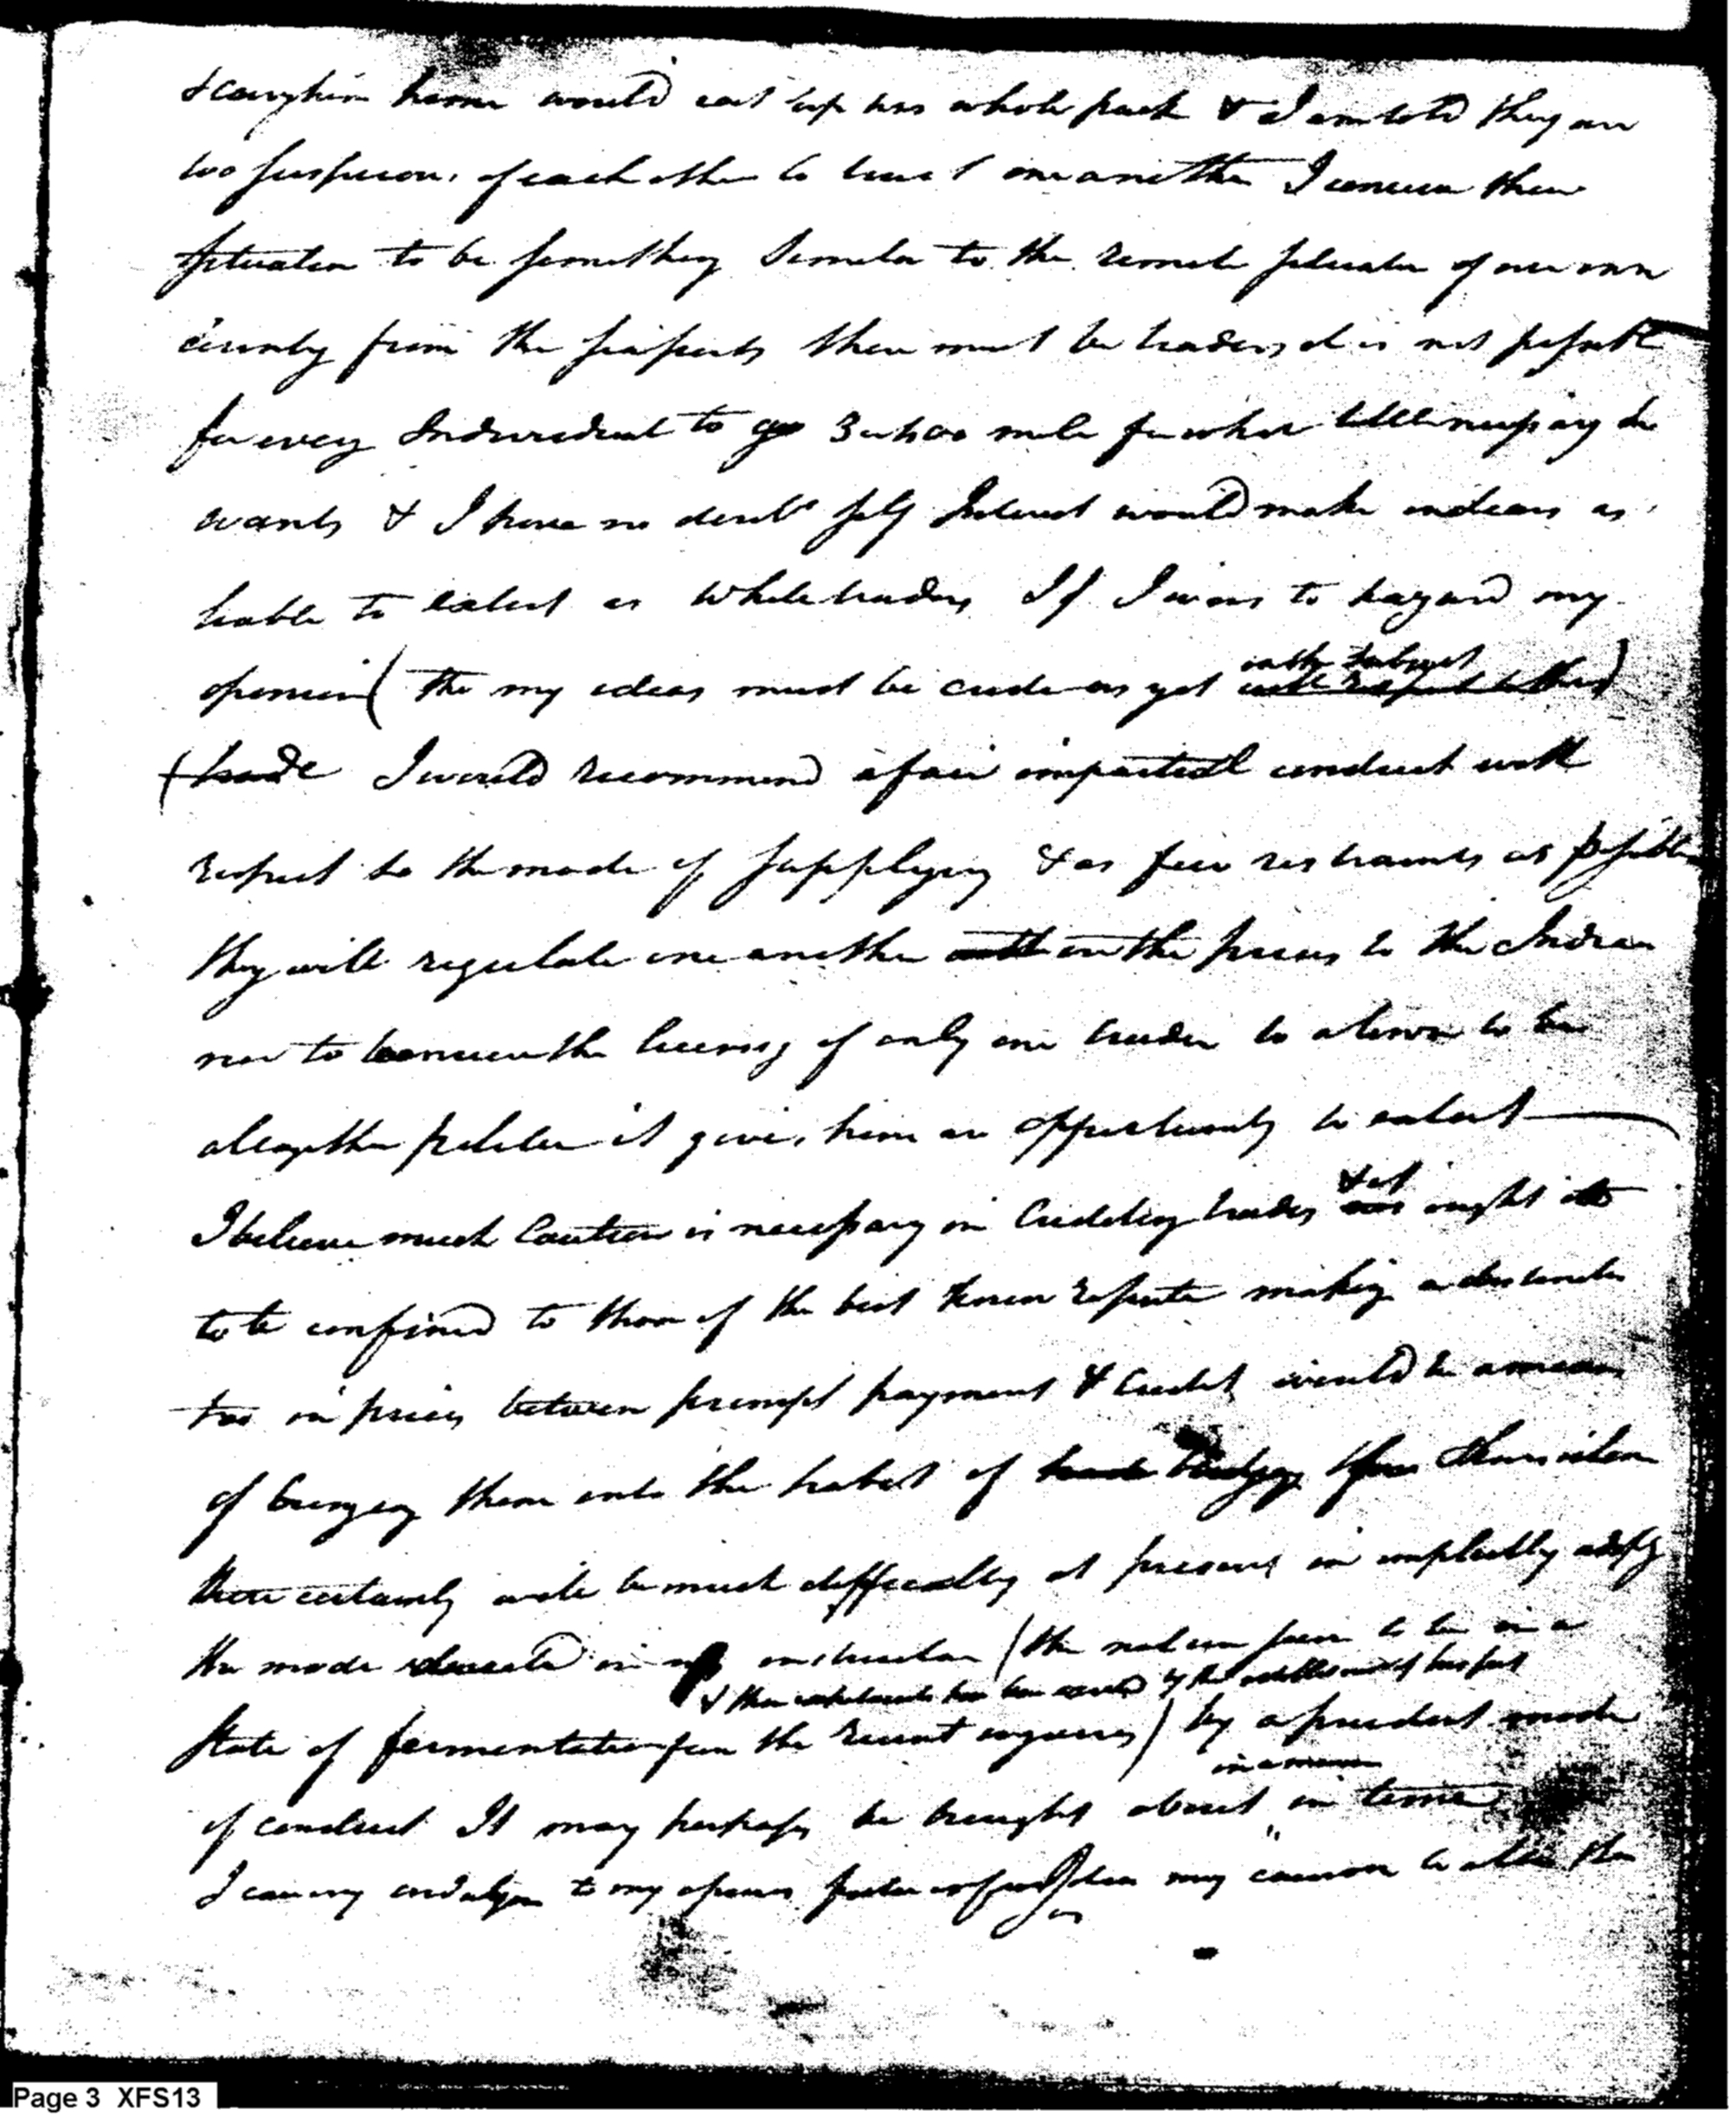 & carry him home would eat up his whole pack & I am told they are
too suspicious of each other to trust one another I conceive their
situation to be something similar to the remote situation of our own
county from the seaports there must be traders, it is not possible
for every Individual to go 3 or 400 mile for what little necessary he
wants & I have no doubt self Interest would make indians as
liable to extort as White traders If I was to hazard my
opinion (tho my ideas must be crude as yet
on the subject
with respect to this)
(trade I would recommend a fair impartial conduct with
respect to the mode of supplying & as few restraints as possible
they will regulate one another in the prices to the Indian
nor to conceive the licensing of only one trader to a town to be
altogether politic it gives him an opportunity to extort
I believe much Caution is necessary in Crediting traders
& it
ought
to be confined to those of the best known repute making a distinction
too in prices between prompt payment & Credit would be a means
of bringing them into the habit of
there certainly will be much difficulty at present in implicitly adopting
the mode in my instruction (the nation seem to be in a
& their has been by the establishment of this post
State of fermentation from the recent ) by a prudent mode
in a mean
of conduct It may perhaps be brought about in time
I can my to my opinion my to the
Page 3 XFS13